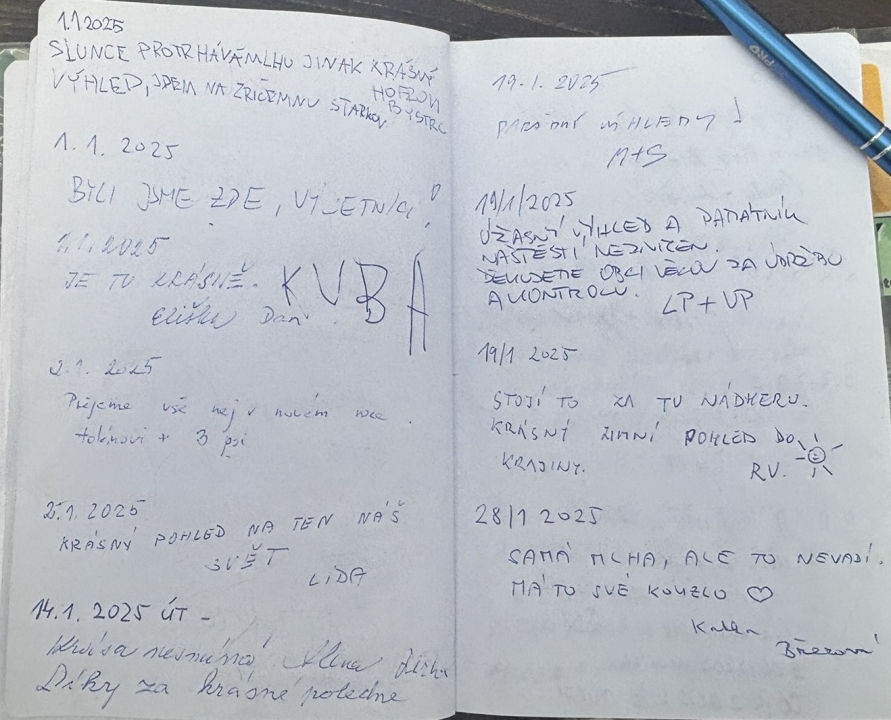 1.1 2025
SLUNCE PROTRHÁVÁ MLHU JINAK KRÁSNÝ
VÝHLED, JDEM NA ZŘÍCENINU STARKOV
BYSTRC
1. 1. 2025
BYLI JSME ZDE, VÝLETNÍCI!
1.1.2025
JE TU KRÁSNĚ. KUBA
Eliška Dan
2.1. 2025
Přejeme vše nej v novém roce.
+ 3 psi
2.1. 2025
KRÁSNÝ POHLED NA TEN NÁŠ
SVĚT
LÍDA
14.1. 2025 ÚT -
Krása nesmírná Alena
Díky za krásné poledne
19.1. 2025
PARÁDNÍ VÝHLEDY!
M+S
19/1/2025
ÚŽASNÝ VÝHLED A PAMÁTNÍK
NAŠTĚSTÍ NEZNIČEN.
DĚKUJEME OBCI ZA ÚDRŽBU
A KONTROLU. LP + VP
19/1 2025
STOJÍ TO ZA TU NÁDHERU.
KRÁSNÝ ZIMNÍ POHLED DO
KRAJINY. RV.
28/1 2025
SAMÁ MLHA, ALE TO NEVADÍ.
MÁ TO SVÉ KOUZLO ♡
Březový
PRO